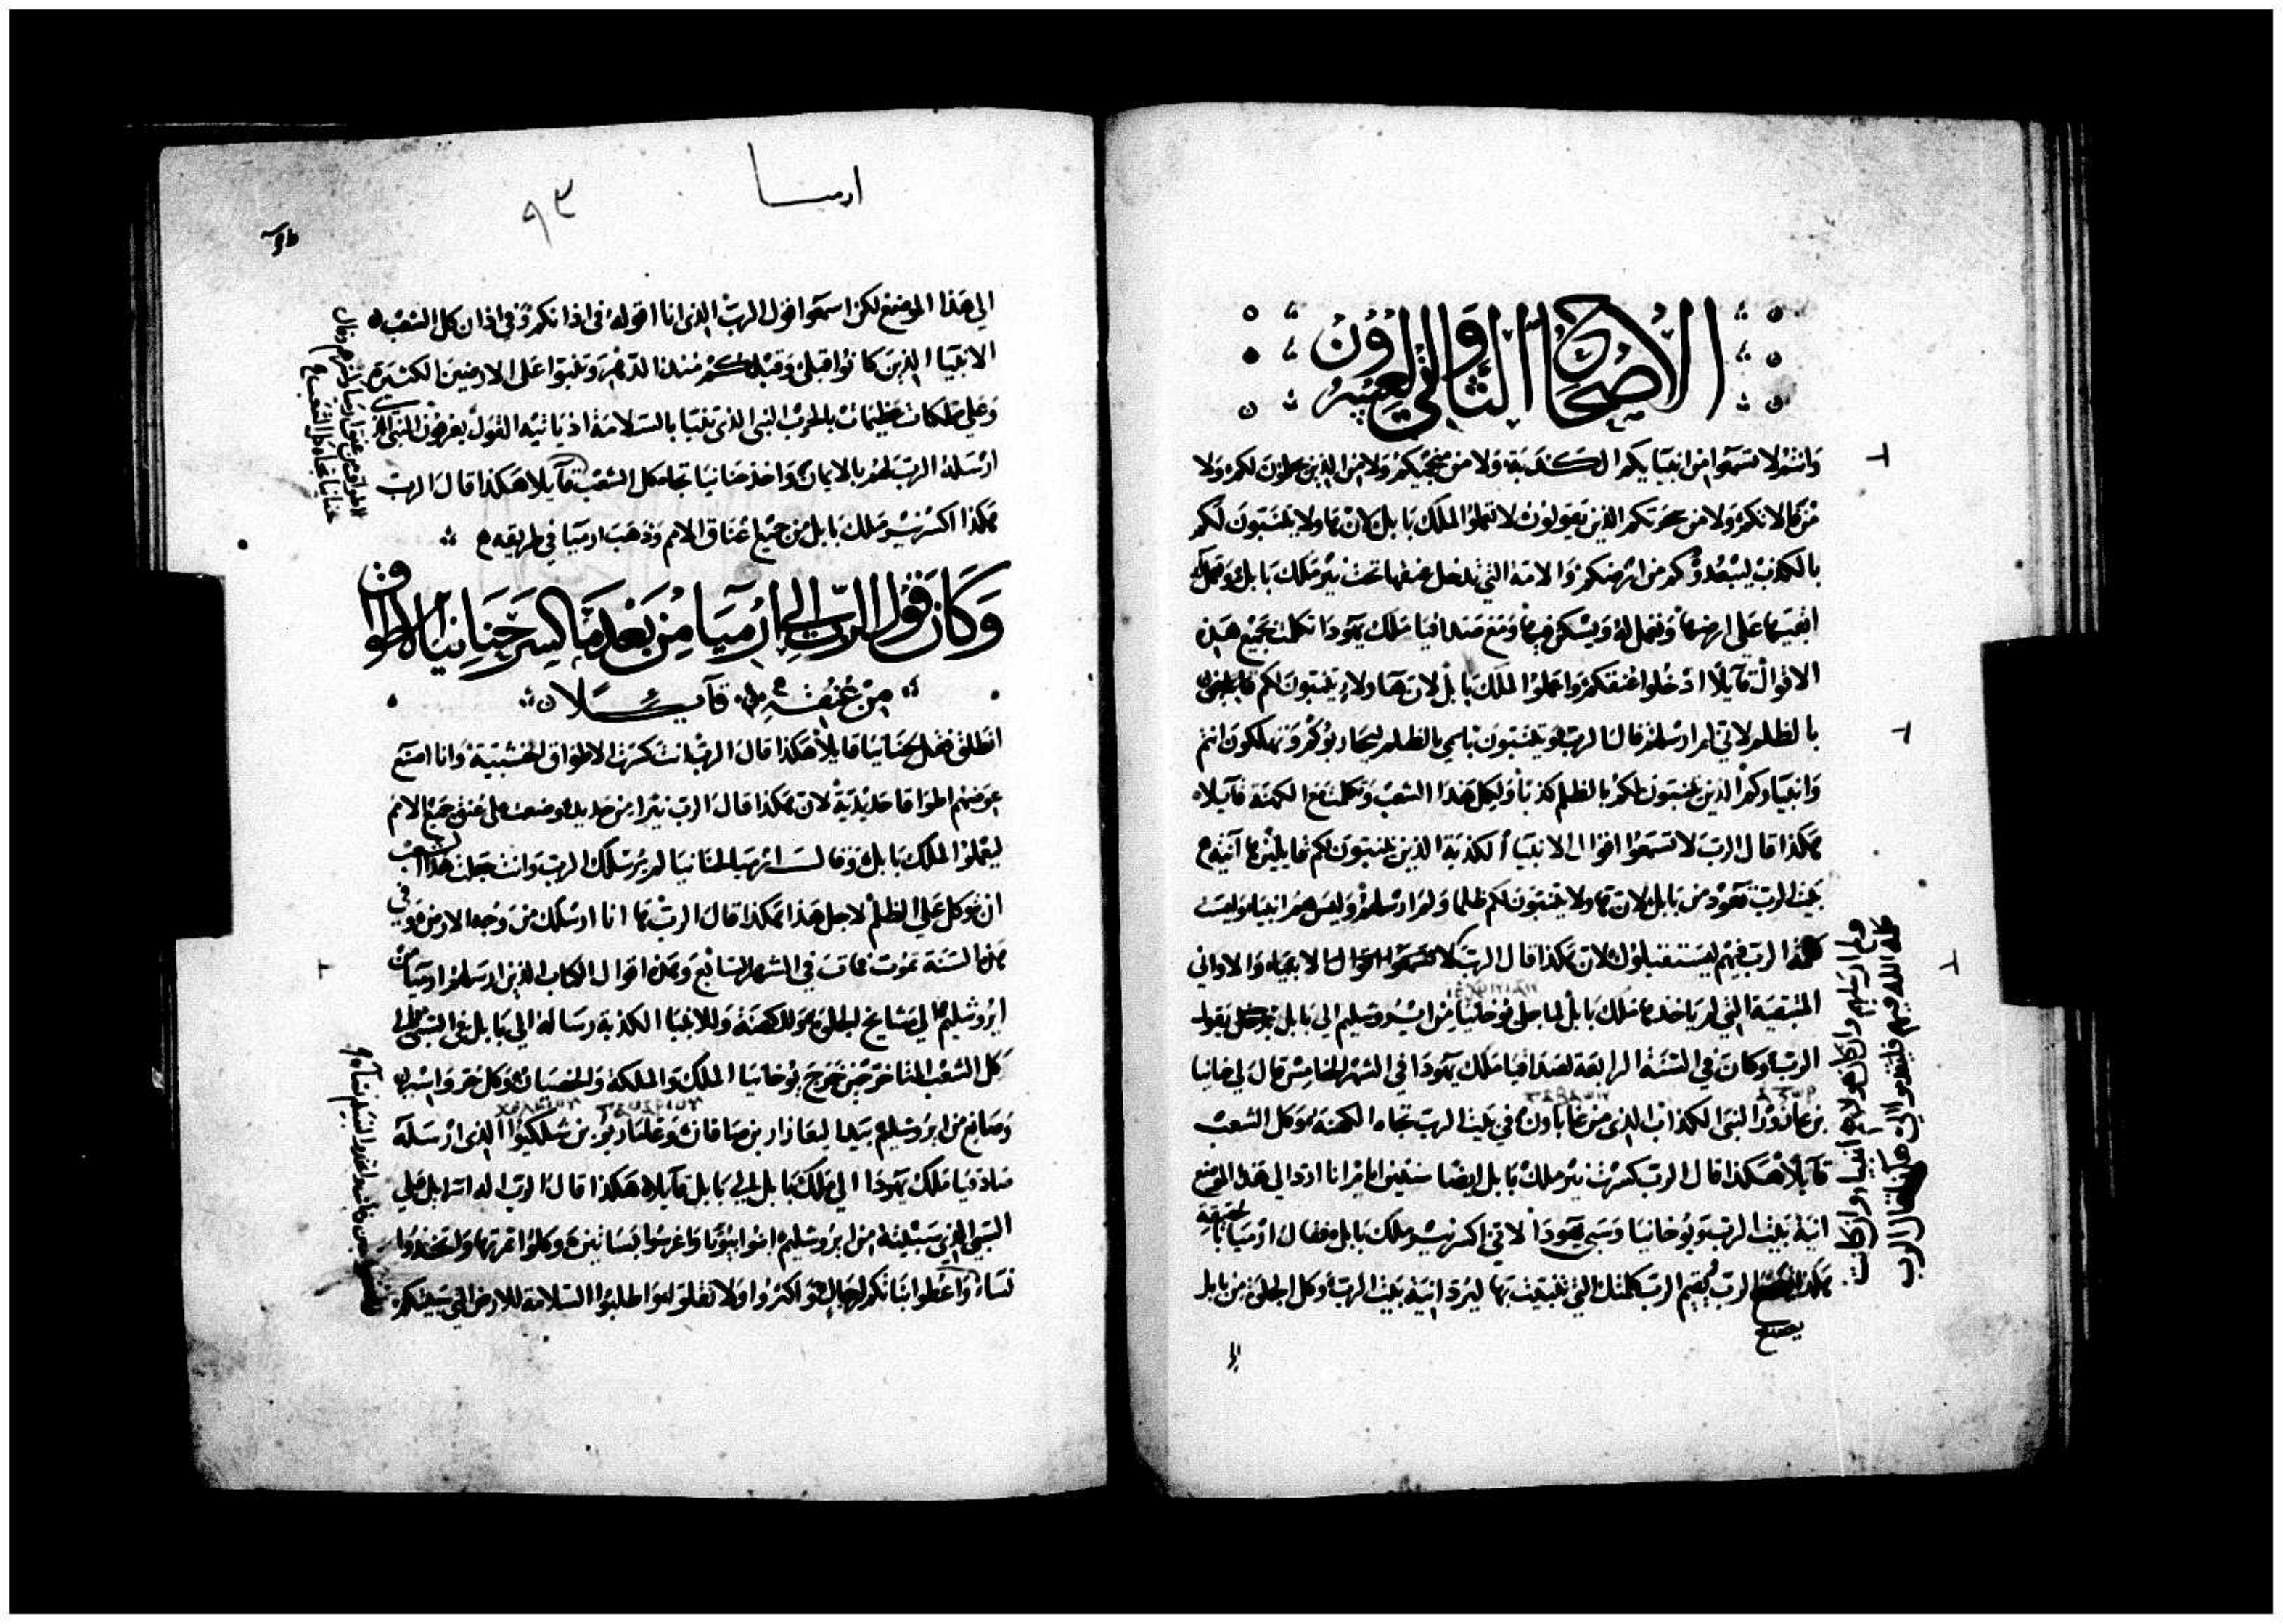 الاصحاح الثاني والعشرون
وانتم لا تسمعوا من انبيايكم الكذبة ولا من منجميكم ولا من الذين يحلمون لكم ولا
من فالاتكم ولا من سحرتكم الذين يقولون لا تعملوا لملك بابل لان ما ولا يتنبون لكم
بالكذب ليبعدوكم من ارضكم والامة التي تدخل عنقها تحت نير ملك بابل وتعمل له
ابقيها على ارضها وتعمل له ويسكن فيها ومع صداقيا ملك يهودا تكلمت بجميع هذه
الاقوال قايلا ادخلوا عنقكم واعملوا لملك بابل لان هما ولا يتنبون لكم
بالظلم لاني لم ارسلهم قال الرب ويتنبون باسمي بالظلم ليحاربوكم وتهلكون انتم
وانبياوكم الذين يتنبون لكم بالظلم كذبا ولكل هذا الشعب وتكلمت مع الكهنة قايلا
هكذا قال الرب لا تسمعوا اقوال الانبيا الكذبة الذين يتنبون لكم قايلين ها آنية
بيت الرب تعود من بابل لان ما ولا يتنبون لكم ظلما ولم ارسلهم وليس هم انبيا وليست
الرب فيهم ليستقبلون لان هكذا قال الرب لا تسمعوا اقوال الانبياء والاواني
المتبقية التي لم ياخذها ملك بابل لما جلى يوخانيا من ايروشليم الى بابل يقول
الرب وكان في السنة الرابعة لصداقيا ملك يهودا في الشهر الخامس قال لي حنانيا
بن عازور النبي الكذاب الذي من غاباون في بيت الرب تجاه الكهنة وكل الشعب
قايلا هكذا قال الرب كسرت نير ملك بابل ايضا سنتين ايام انا ارد الى هذا الموضع
انية بيت الرب ويوخانيا وسبي يهودا لاني اكسر نير ملك بابل فقال ارميا
هكذا الرب يقيم الرب كلمتك التي تنبيت بها ليرد انية بيت الرب وكل الجلى من بابل
يصنع
ولم ارسلهم وان كان هولاي انبيا وان كانت
كلمة الله فيهم فليتقدموا الي هكذا قال الرب
الى
ارميا
٩٣
الى هذا الموضع لكن اسمعوا قول الرب الذي انا اقوله في اذانكم وفي اذان كل الشعب
الانبيا الذين كانوا قبلي وقبلكم منذ الدهر وتنبوا على الارضين الكثيرة
وعلى مملكات عظيمات بالحرب النبي الذي تنبا بالسلامة اذ يانيه القول يعرفون النبي الذي
ارسله الرب لهم بالايمان واخذ حنانيا تجاه كل الشعب قايلا هكذا قال الرب
هكذا اكسر نير ملك بابل من جميع اعناق الامم وذهب ارميا في طريقه
الاطواق من عنق ارميا وكسرهم وقال
حنانيا تجاه كل الشعب
وكان قول الرب الى ارميا من بعد ما كسر حنانيا الاطواق
من عنقه قايلا
انطلق فقل لحنانيا قايلا هكذا قال الرب انت كسرت الاطواق الخشبية وانا اصنع
عوضهم اطواقا حديدية لان هكذا قال الرب نيرا من حديد وضعت على عنق جميع الامم
ليعملوا لملك بابل وقال ارميا لحنانيا لم يرسلك الرب وانت جعلت هذا الشعب
ان يتوكل على الظلم لاجل هذا هكذا قال الرب ها انا ارسلك من وجه الارض وفي
هذه السنة تموت فمات في الشهر السابع وهذه اقوال الكتاب الذي ارسله ارميا من
ايروشليم الى مشايخ الجلى وللكهنة وللانبيا الكذبة رسالة الى بابل في السبي والى
كل الشعب المتاخر حين خرج يوخانيا الملك والملكة والخصيان وكل حر واسير
وصانع من ايروشليم بيد اليعازار بن صافان وغلماريو بن شلكيوا الذي ارسله
صادقيا ملك يهودا الى ملك بابل الى بابل قايلا هكذا قال الرب اله اسراييل على
السبي الذي سبيته من ايروشليم ابنوا بيوتا واغرسوا بساتين وكلوا ثمرتها واتخذوا
نساء واعطوا بناتكم لرجال واكثروا ولا تقلوا واطلبوا السلامة للارض التي سبيتكم